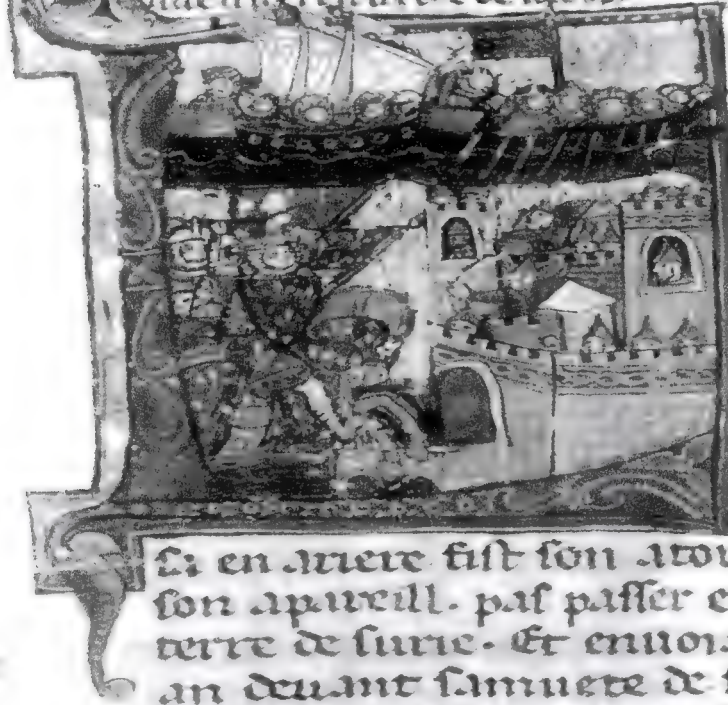 en ariere fist son atou
son apareill. pas passer e
terre de surie. Et enuoi
an deuant samuete de